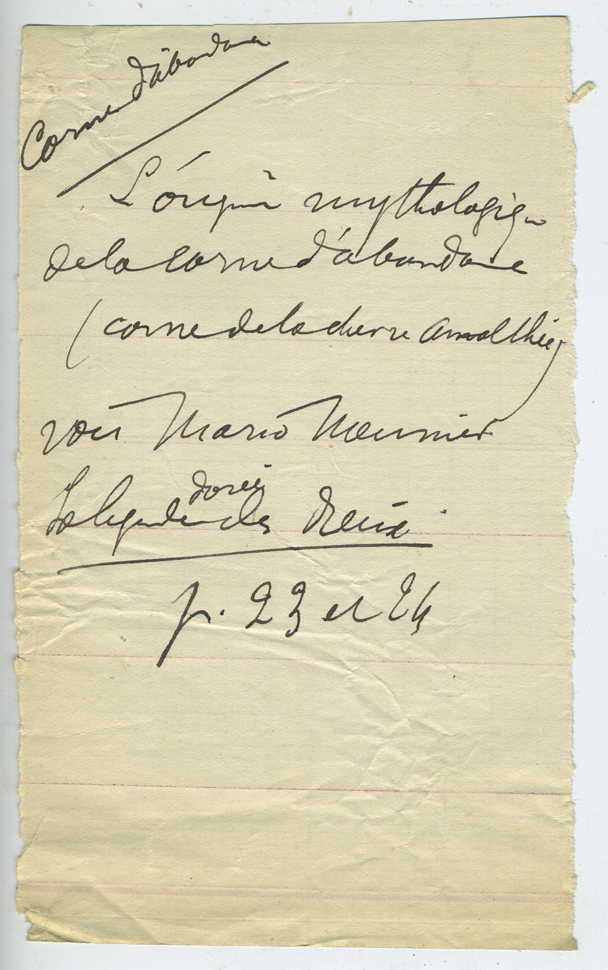 Corne d'abondance
L'origine mythologique
de la corne d'abondance
(corne de la chèvre Amalthée)
voir Mario Meunier
La légende dorée des Dieux
p. 23 et 24